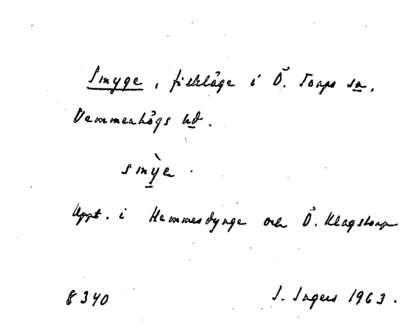 Smyge, fiskläge i Ö. Torps sn,
Vemmenhögs hd.
smỳe.
Uppt. i Hemmesdynge och Ö. Klagstorp
8340 I. Ingers 1963.